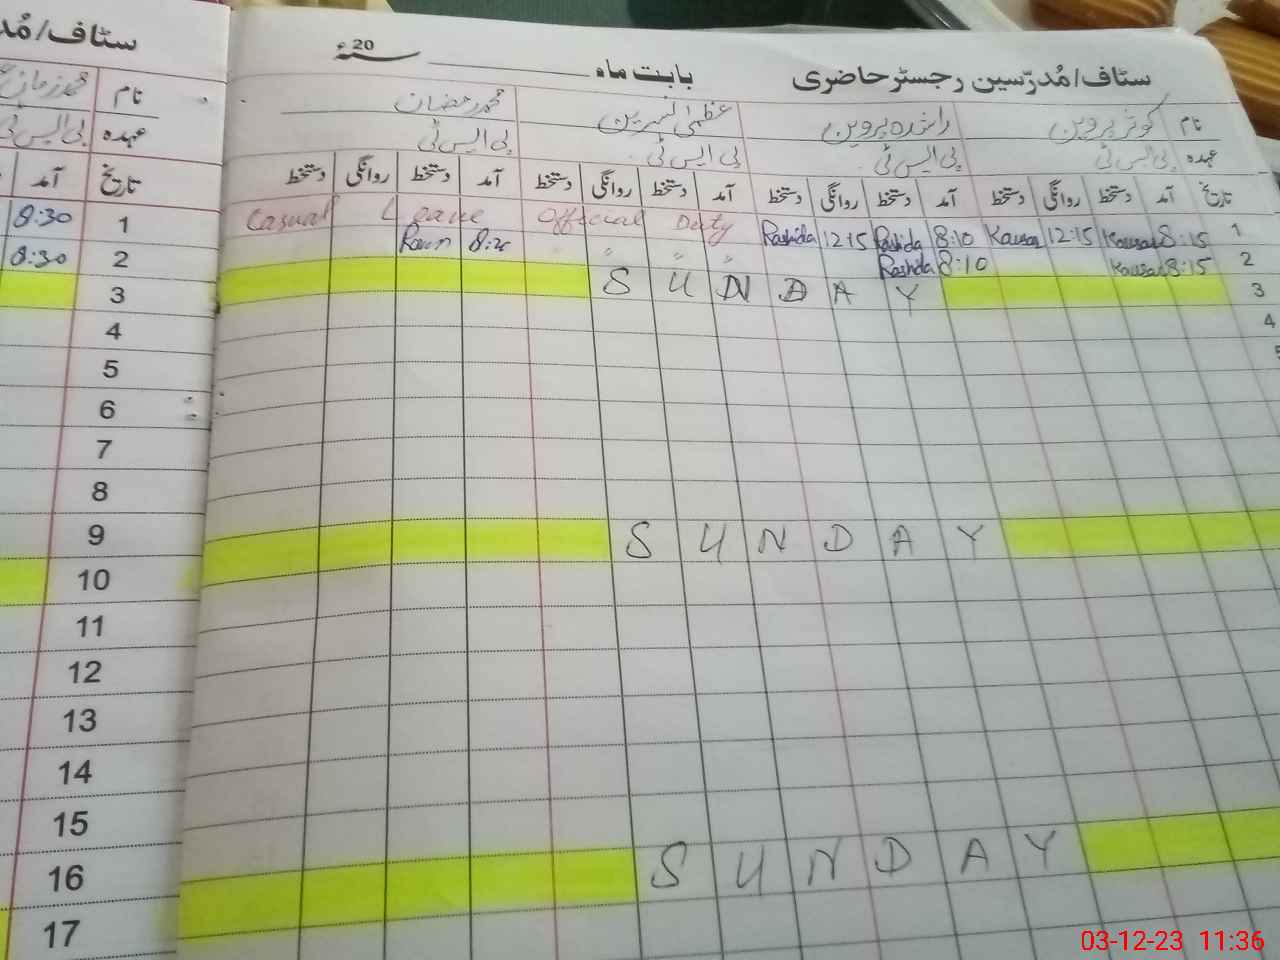 سٹاف/مُدرّسین رجسٹر حاضری بابت ماہ ــــــــ 20 سنۂ
نام کوثر پروین راشدہ پروین عظمیٰ نسرین محمد رمضان
عہدہ پی ایس ٹی پی ایس ٹی پی ایس ٹی پی ایس ٹی
تاریخ آمد دستخط روانگی دستخط آمد دستخط روانگی دستخط آمد دستخط روانگی دستخط آمد دستخط روانگی دستخط
1 8:15 Kausar 12:15 Kausar 8:10 Rashida 12:15 Rashida Official Duty Casual Leave
2 8:15 Kausar 8:10 Rashida " " "
3 SUNDAY
4
5
SUNDAY
SUNDAY
سٹاف/مُد
نام محمد زمان
عہدہ پی ایس ٹی
تاریخ آمد
1 8:30
2 8:30
3
4
5
6
7
8
9
10
11
12
13
14
15
16
17
03-12-23 11:36